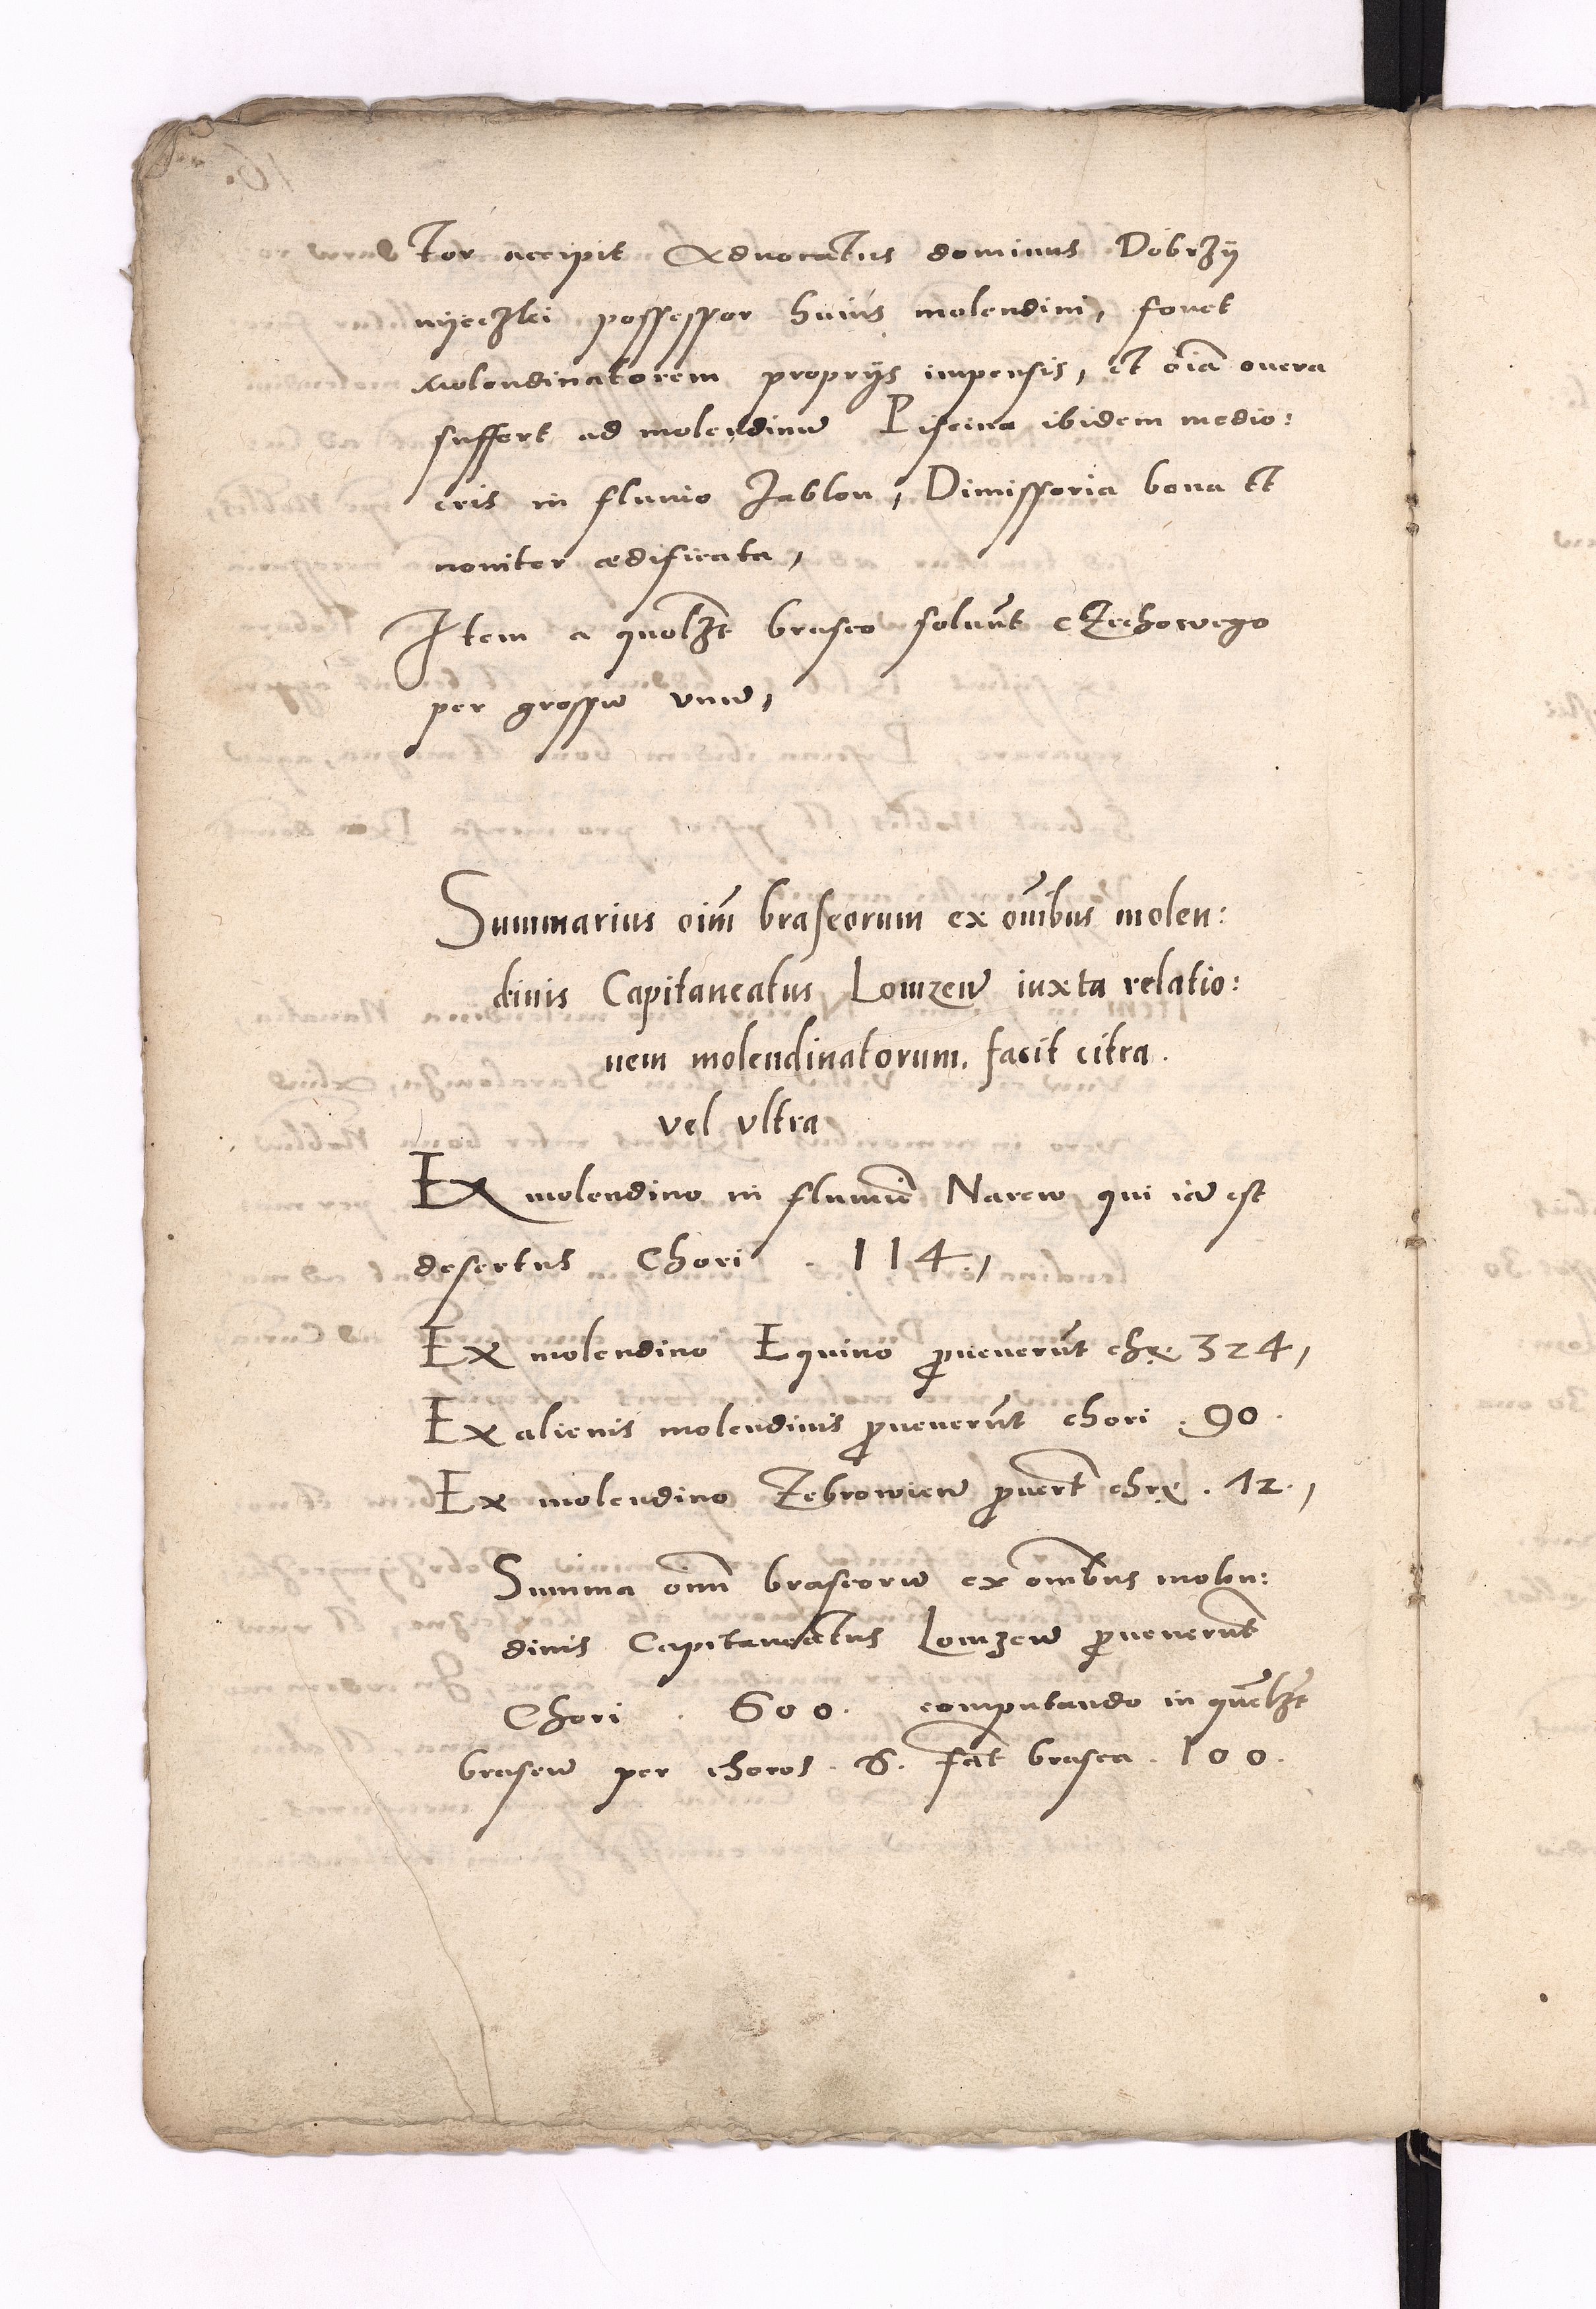 tor accipit Advocatus dominus Dobrzÿ
nÿeczki possessor huius molendini, fovet
Molendinatorem proprÿs impensis, et oīa onera
suffert ad molendinu Piscina ibidem medio:
cris in fluvio Jablon, Dimissoria bona et
noviter ædificata,
Item a quolzt braseo solvūt Czechowego
per grossu unu,
Summarius oim̄ braseorum ex om̄ibus molen:
dinis Capitaneatus Lomzen̄ iuxta relatio:
nem molendinatorum. facit citra.
vel ultra
Ex molendino in flumīe Narew qui iā est
desertus Chori . 114,
Ex molendino Equino ꝓvenerūt chr 324,
Ex alienis molendinis ꝓvenerūt chori . 90.
Ex molendino Zebrowien̄ ꝓvert chr . 12.,
Summa oim̄ braseoru ex om̄ibus molen:
dinis Capitaneatus Lomzen̄ ꝓvenerūt
Chori . 600. computando in quēlzt
braseu per choros . 6. fāt brasea . 100.